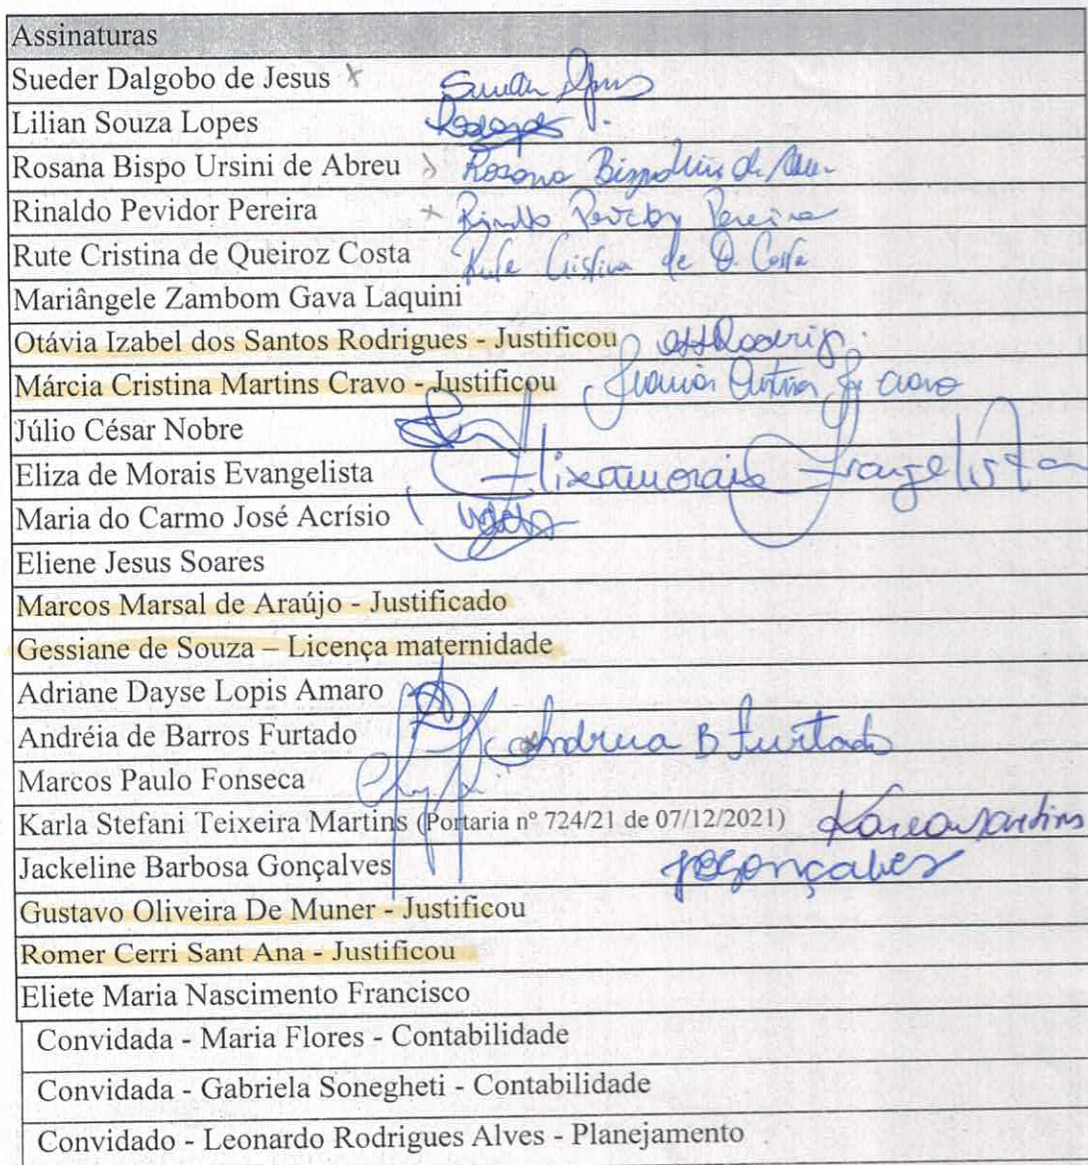 Assinaturas
Sueder Dalgobo de Jesus x
Lilian Souza Lopes
Rosana Bispo Ursini de Abreu Rosana Bispo
Rinaldo Pevidor Pereira x Pereira
Rute Cristina de Queiroz Costa Rute Cristina de Q. Costa
Mariângele Zambom Gava Laquini
Otávia Izabel dos Santos Rodrigues - Justificou
Márcia Cristina Martins Cravo - Justificou
Júlio César Nobre
Eliza de Morais Evangelista Evangelista
Maria do Carmo José Acrísio
Eliene Jesus Soares
Marcos Marsal de Araújo - Justificado
Gessiane de Souza – Licença maternidade
Adriane Dayse Lopis Amaro
Andréia de Barros Furtado Andreia B Furtado
Marcos Paulo Fonseca
Karla Stefani Teixeira Martins (Portaria nº 724/21 de 07/12/2021)
Jackeline Barbosa Gonçalves
Gustavo Oliveira De Muner - Justificou
Romer Cerri Sant Ana - Justificou
Eliete Maria Nascimento Francisco
Convidada - Maria Flores - Contabilidade
Convidada - Gabriela Sonegheti - Contabilidade
Convidado - Leonardo Rodrigues Alves - Planejamento